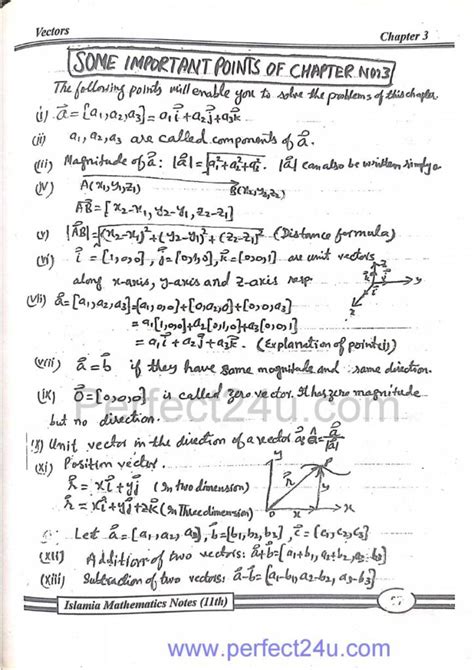 Vectors
Chapter 3
SOME IMPORTANT POINTS OF CHAPTER NO.3
The following points will enable you to solve the problems of this chapter
(i) a⃗ = [a₁,a₂,a₃] = a₁i⃗ + a₂j⃗ + a₃k⃗
(ii) a₁, a₂, a₃ are called components of a⃗.
(iii) Magnitude of a⃗: |a⃗| = √a₁²+a₂²+a₃². |a⃗| can also be written simply a
(iv) A(x₁,y₁,z₁) B(x₂,y₂,z₂)
A⃗B = [x₂-x₁, y₂-y₁, z₂-z₁]
(v) |A⃗B| = √(x₂-x₁)²+(y₂-y₁)²+(z₂-z₁)² (Distance formula)
(vi) i⃗ = [1,0,0], j⃗ = [0,1,0], k⃗ = [0,0,1] are unit vectors
along x-axis, y-axis and z-axis resp.
(vii) a⃗ = [a₁,a₂,a₃] = [a₁,0,0]+[0,a₂,0]+[0,0,a₃]
= a₁[1,0,0]+a₂[0,1,0]+a₃[0,0,1]
= a₁i⃗ + a₂j⃗ + a₃k⃗. (Explanation of point(i))
(viii) a⃗ = b⃗ if they have same magnitude and same direction.
(ix) 0⃗ = [0,0,0] is called zero vector. It has zero magnitude
but no direction.
Perfect24u.com
(x) Unit vector in the direction of a vector a⃗; â = a⃗/|a⃗|
(xi) Position vector.
r⃗ = xi⃗ + yj⃗ (In two dimension)
r⃗ = xi⃗ + yj⃗ + zk⃗ (In Three dimension)
Let a⃗ = [a₁,a₂,a₃], b⃗ = [b₁,b₂,b₃], c⃗ = [c₁,c₂,c₃]
(xii) Addition of two vectors: a⃗+b⃗ = [a₁+b₁, a₂+b₂, a₃+b₃]
(xiii) Subtraction of two vectors: a⃗-b⃗ = [a₁-b₁, a₂-b₂, a₃-b₃]
Islamia Mathematics Notes (11th)
www.perfect24u.com